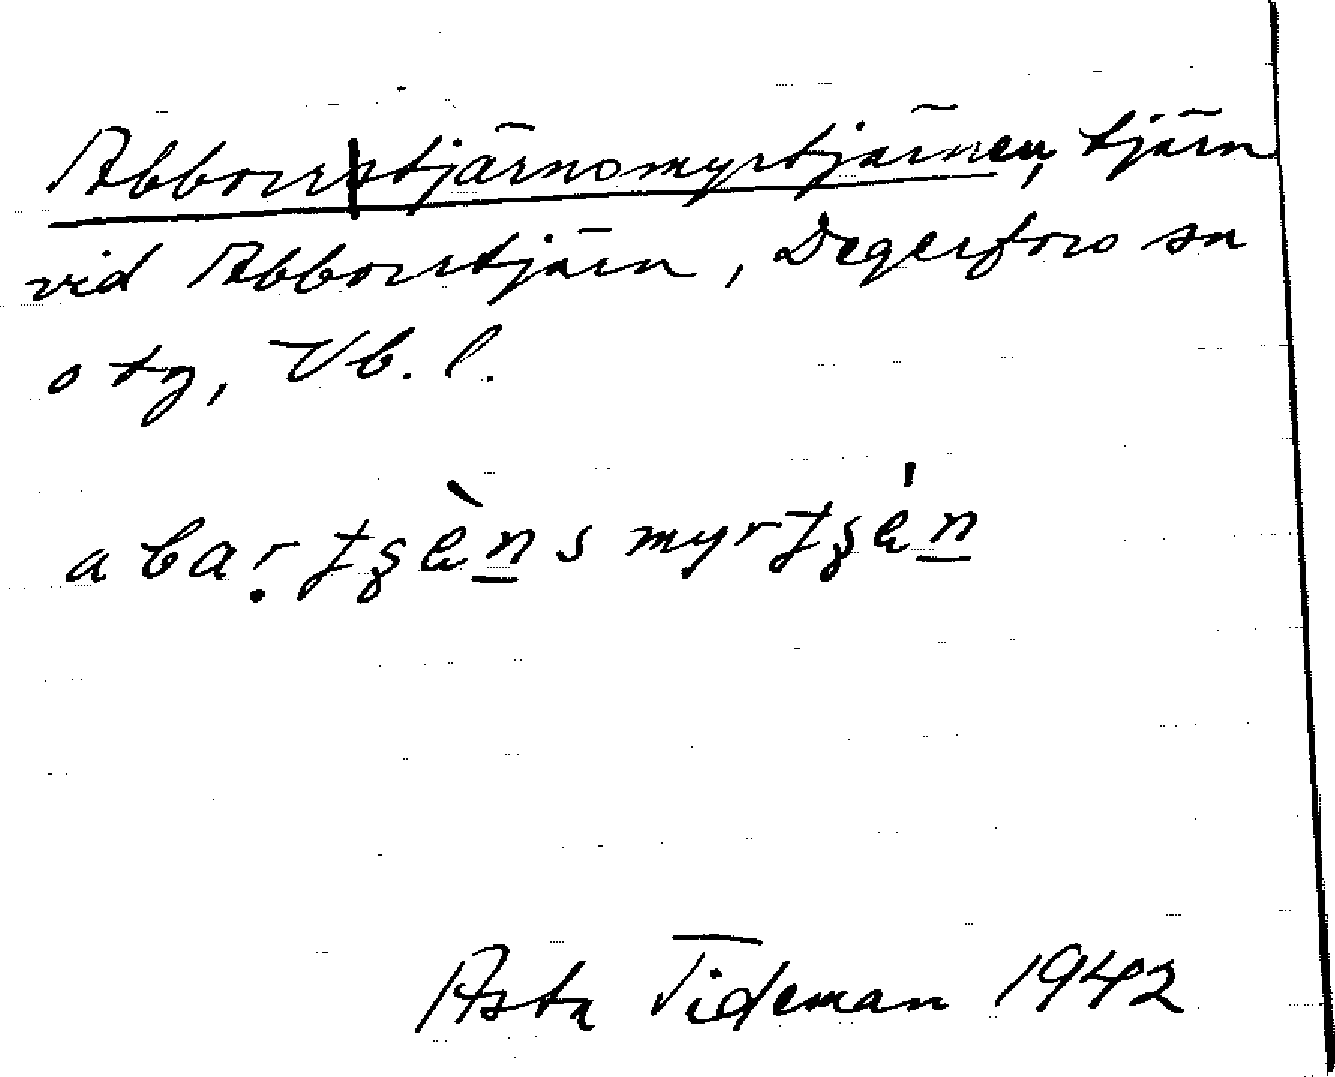 Abborrstjärnsmyrtjärnen, tjärn
vid Abborrtjärn, Degerfors sn
o tg, Vb. l.
abaṛ ʈʂèn̲s myrʈʂén̲
Asta Tideman 1942